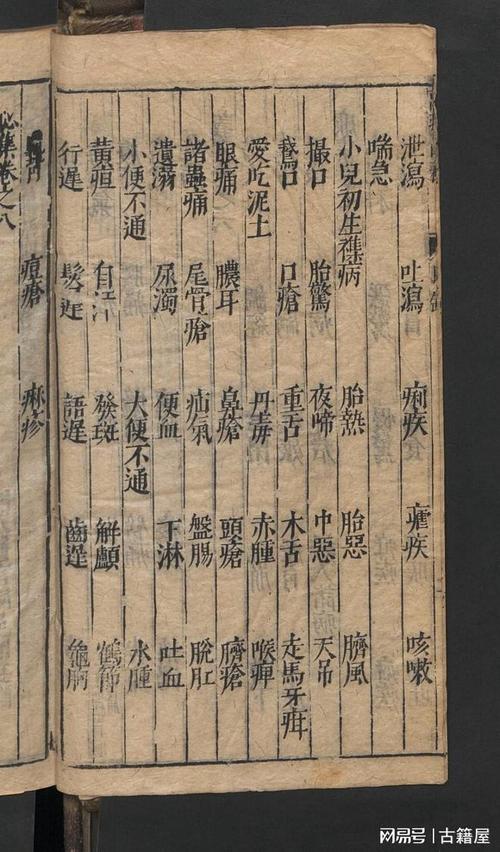 泄瀉 吐瀉 痢疾 瘧疾 咳嗽
喘急
小兒初生雜病 胎熱 胎惡 臍風
撮口 胎驚 夜啼 中惡 天吊
噤口 口瘡 重舌 木舌 走馬牙疳
愛吃泥土 丹毒 赤腫 喉痹
眼痛 膿耳 鼻瘡 頭瘡 臍瘡
諸蟲痛 尾骨瘡 疝氣 盤腸 脫肛
遺溺 尿濁 便血 下淋 吐血
小便不通 大便不通 水腫
黃疸 自汗 發斑 解顱 鶴節
行遲 髮遲 語遲 齒遲 龜胸
痘瘡 痳疹
卷之八
網易號 | 古籍屋